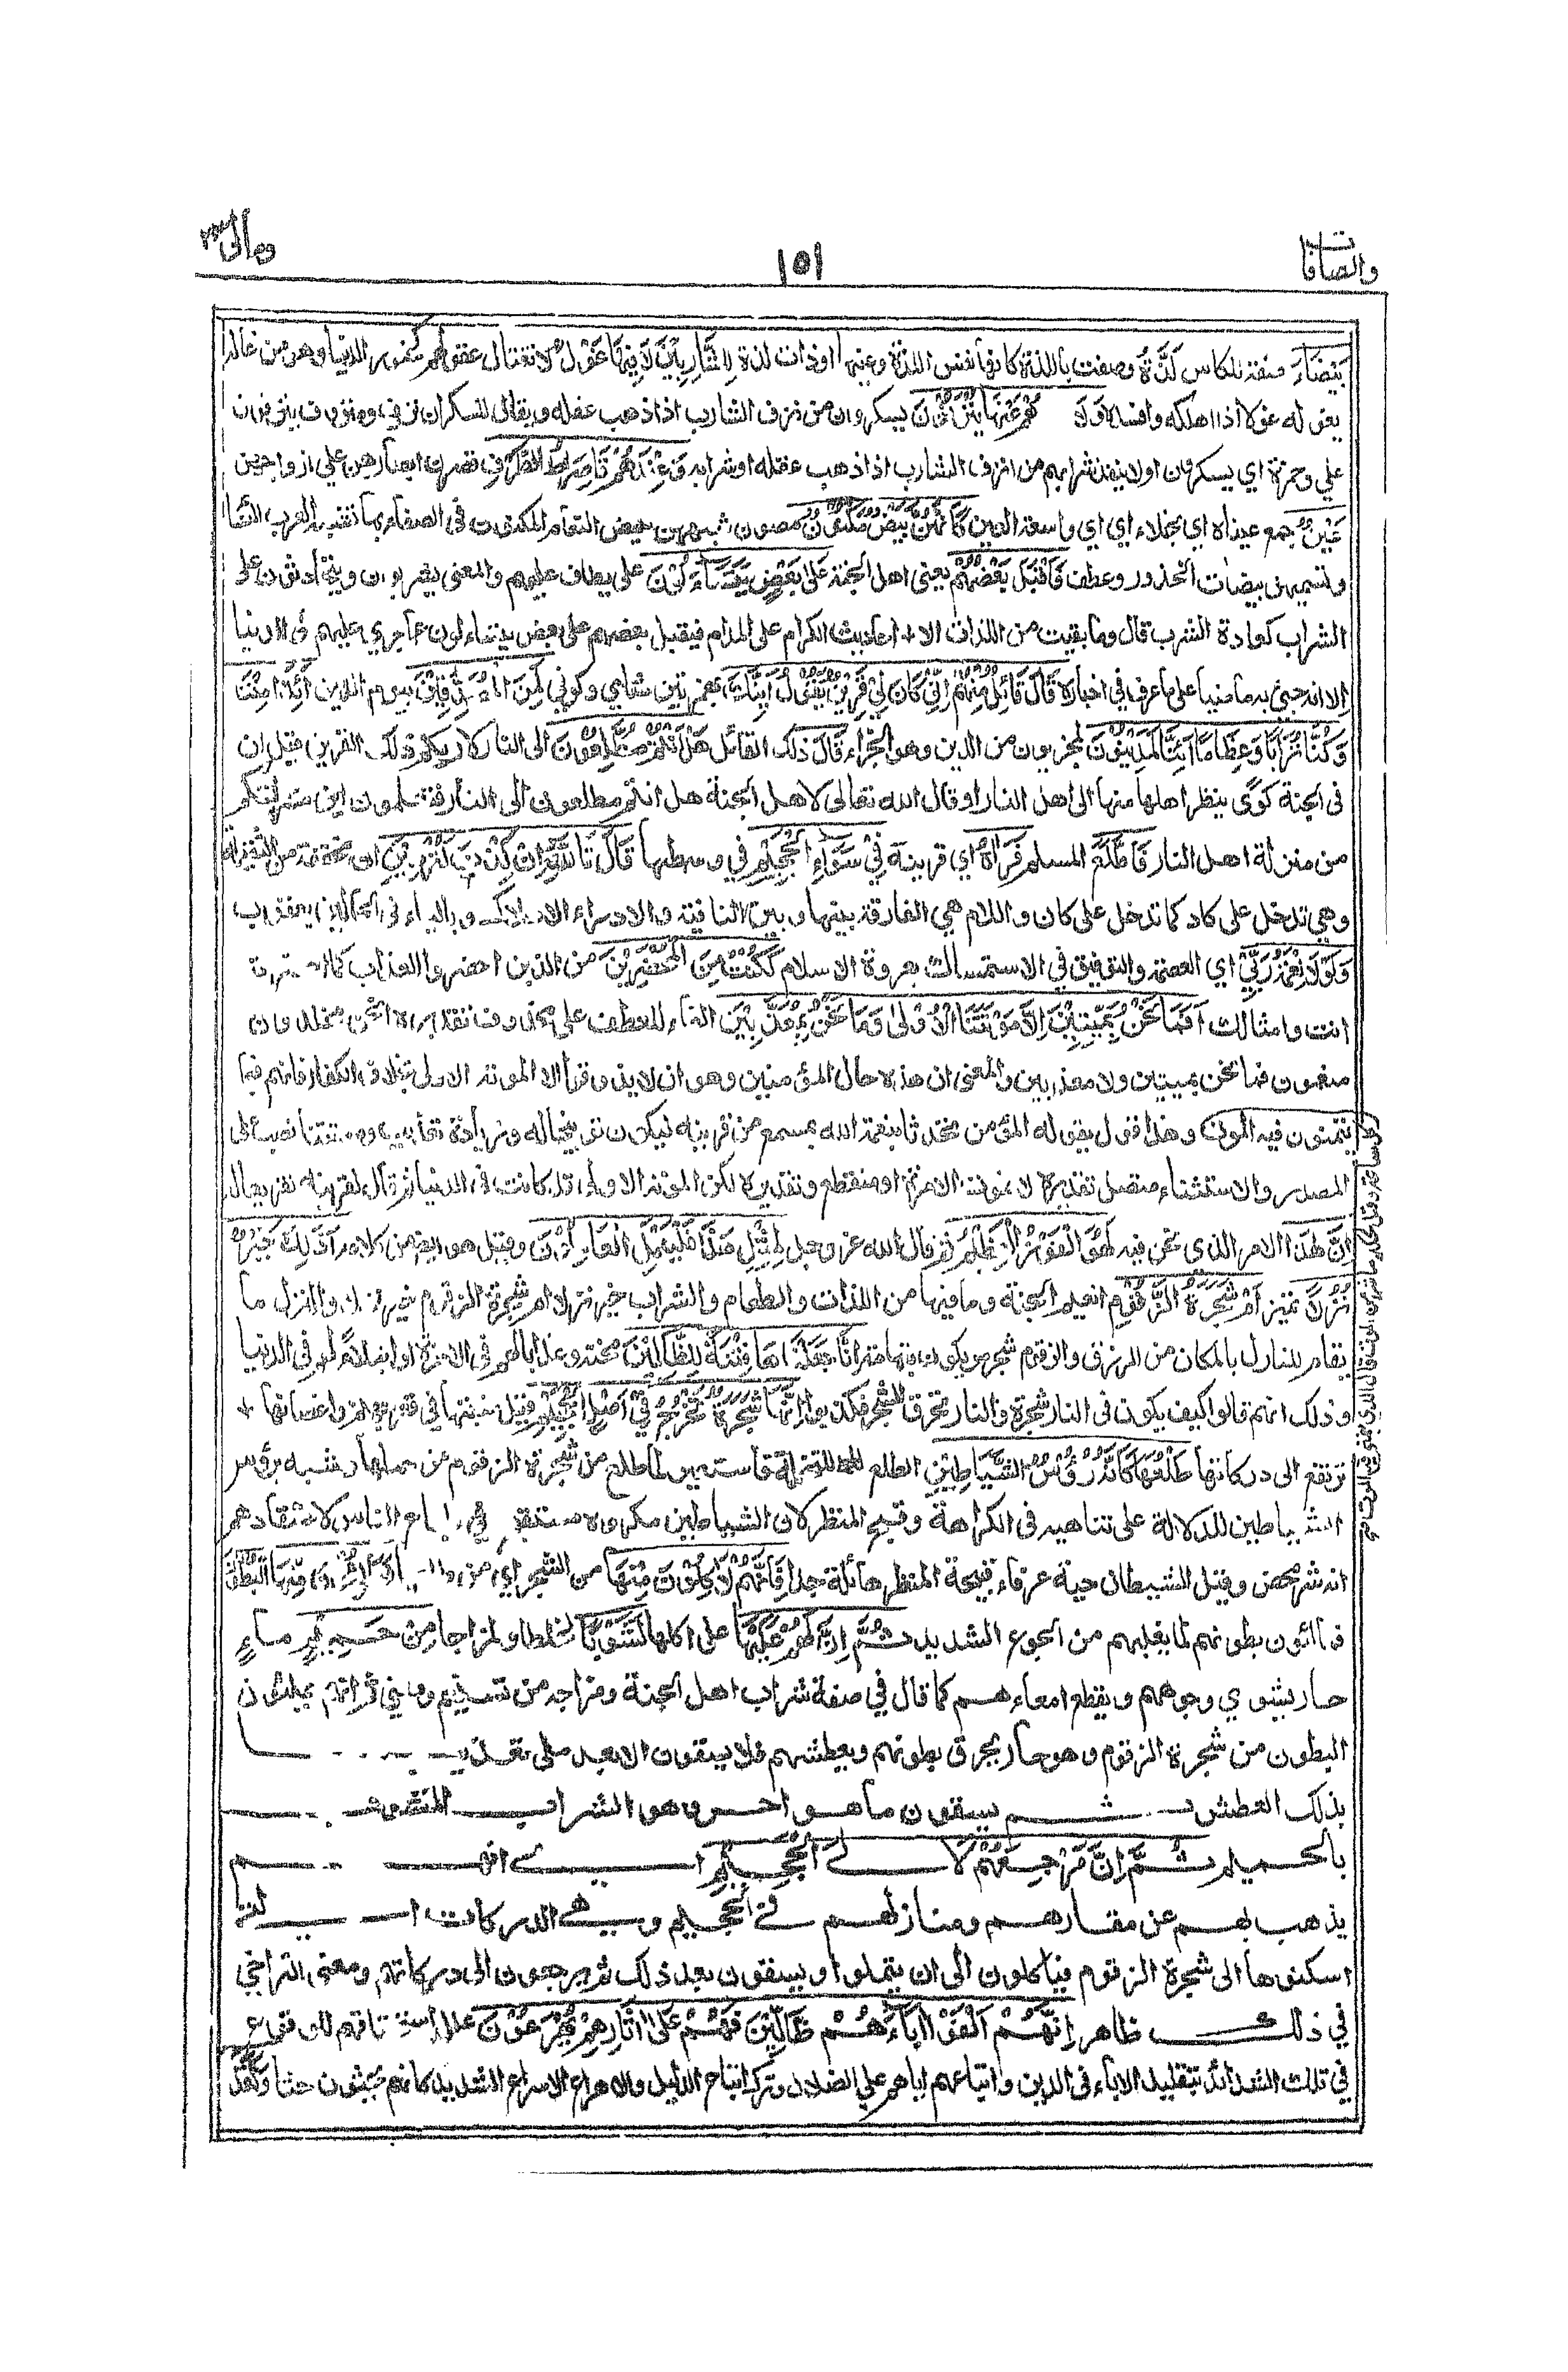 والصافات
١٥١
ومالى ٢٣
بَيْضَاءَ صفة للكاس لَذَّةٍ وصفت باللذة كانها نفس اللذة وعينها اوذات لذة لِلشَّارِبِيْنَ لَا فِيْهَا غَوْلٌ لا تغتال عقولهم كخمور الدنيا وهو من غاله
يغوله غولا اذا اهلكه وافسده وَلَا هُمْ عَنْهَا يُنْزَفُوْنَ يسكرون من نزف الشارب اذا ذهب عقله ويقال للسكران نزيف ومنزوف ينزفون
علي وحمزة اي يسكرون او لا ينفد شرابهم من انزف الشارب اذا ذهب عقله او شرابه وَعِنْدَهُمْ قَاصِرَاتُ الطَّرْفِ قصرن ابصارهن على ازواجهن
عِيْنٌ جمع عيناء اي نجلاء اي اي واسعة العين كَأَنَّهُنَّ بَيْضٌ مَّكْنُوْنٌ مصون شبههن ببيض النعام المكنون في الصفاء وبها تشبه العرب النساء
وتسميهن بيضات الخدور وعطف فَأَقْبَلَ بَعْضُهُمْ يعني اهل الجنة عَلٰى بَعْضٍ يَتَسَاءَلُوْنَ على يطاف عليهم والمعنى يشربون ويتحادثون على
الشراب كعادة الشرب قال وما بقيت من اللذات الا + احاديث الكرام على المدام فيقبل بعضهم على بعض يتساءلون عما جرى عليهم في الدنيا
الا انه جيئ به ماضيا على ما عرف في اخباره قَالَ قَائِلٌ مِّنْهُمْ اِنِّيْ كَانَ لِيْ قَرِيْنٌ يَّقُوْلُ اَئِنَّكَ بهمزتين شامي وكوفي لَمِنَ الْمُصَدِّقِيْنَ بيوم الدين اَئِذَا مِتْنَا
وَكُنَّا تُرَابًا وَّعِظَامًا اَئِنَّا لَمَدِيْنُوْنَ لمجزيون من الدين وهو الجزاء قَالَ ذلك القائل هَلْ اَنْتُمْ مُّطَّلِعُوْنَ الى النار لاريكم ذلك القرين قيل ان
في الجنة كوًى ينظر اهلها منها الى اهل النار او قال الله تعالى لاهل الجنة هل انتم مطلعون الى النار فتعلمون اين منزلتكم
من منزلة اهل النار فَاطَّلَعَ المسلم فَرَاٰهُ اي قرينه فِيْ سَوَاءِ الْجَحِيْمِ في وسطها قَالَ تَاللّٰهِ اِنْ كِدْتَّ لَتُرْدِيْنِ ان مخففة من الثقيلة
وهي تدخل على كاد كما تدخل على كان واللام هي الفارقة بينها وبين النافية والارداء الاهلاك وبالياء في الحالين يعقوب
وَلَوْلَا نِعْمَةُ رَبِّيْ اي العصمة والتوفيق في الاستمساك بعروة الاسلام لَكُنْتُ مِنَ الْمُحْضَرِيْنَ من الذين احضروا العذاب كما احضرته
انت وامثالك اَفَمَا نَحْنُ بِمَيِّتِيْنَ اِلَّا مَوْتَتَنَا الْاُوْلٰى وَمَا نَحْنُ بِمُعَذَّبِيْنَ الفاء للعطف على محذوف تقديره انحن مخلدون
منعمون فما نحن بميتين ولا معذبين والمعنى ان هذه حال المؤمنين وهو ان لا يذوقوا الا الموتة الاولى بخلاف الكفار فانهم فيما
يتمنون فيه الموت وهذا قول يقوله المؤمن تحدثا بنعمة الله بمسمع من قرينه ليكون توبيخا له وزيادة تعذيب وموتتنا نصب على
المصدر والاستثناء متصل تقديره لا نموت الا مرة او منقطع وتقديره لكن الموتة الاولى قد كانت في الدنيا ثم قال لقرينه تقريعا له
اِنَّ هٰذَا الامر الذي نحن فيه لَهُوَ الْفَوْزُ الْعَظِيْمُ ثم قال الله عز وجل لِمِثْلِ هٰذَا فَلْيَعْمَلِ الْعَامِلُوْنَ وقيل هو ايضا من كلامه اَذٰلِكَ خَيْرٌ
نُّزُلًا تمييز اَمْ شَجَرَةُ الزَّقُّوْمِ اي نعيم الجنة وما فيها من اللذات والطعام والشراب خير نزلا ام شجرة الزقوم خير نزلا والنزل ما
يقام للنازل بالمكان من الرزق والزقوم شجر مر يكون بتهامة اِنَّا جَعَلْنَاهَا فِتْنَةً لِّلظَّالِمِيْنَ محنة وعذابا لهم في الاخرة او ابتلاءً لهم في الدنيا
وذلك انهم قالوا كيف يكون في النار شجرة والنار تحرق الشجر فكذبوا اِنَّهَا شَجَرَةٌ تَخْرُجُ فِيْ اَصْلِ الْجَحِيْمِ قيل منبتها في قعر جهنم واغصانها +
ترتفع الى دركاتها طَلْعُهَا كَاَنَّهُ رُؤُسُ الشَّيَاطِيْنِ الطلع للنخلة فاستعير لما طلع من شجرة الزقوم من حملها وشبه برؤس
الشياطين للدلالة على تناهيه في الكراهة وقبح المنظر لان الشياطين مكروه مستقبح في طباع الناس لاعتقادهم
انه شر محض وقيل الشيطان حية عرفاء قبيحة المنظر هائلة جدا فَاِنَّهُمْ لَاٰكِلُوْنَ مِنْهَا من الشجرة اي من طلعها فَمَالِؤُنَ مِنْهَا الْبُطُوْنَ
فمالئون بطونهم لما يغلبهم من الجوع الشديد ثُمَّ اِنَّ لَهُمْ عَلَيْهَا على اكلها لَشَوْبًا لخلطا ولمزاجا مِنْ حَمِيْمٍ ماءٍ
حار يشوي وجوههم ويقطع امعاءهم كما قال في صفة شراب اهل الجنة ومزاجه من تسنيم ومعنى ثم انهم يملئون
البطون من شجرة الزقوم وهو حار يحرق بطونهم ويعطشهم فلا يسقون الا بعد ملي تعذيبا
بذلك العطش ثم يسقون ما هو احر وهو الشراب المشوب
بالحميم ثُمَّ اِنَّ مَرْجِعَهُمْ لَاِلَى الْجَحِيْمِ اي انهم
يذهب بهم عن مقارهم ومنازلهم في الجحيم وهي الدركات التي
اسكنوها الى شجرة الزقوم فياكلون الى ان يتملوا ويسقون بعد ذلك ثم يرجعون الى دركاتهم ومعنى التراخي
في ذلك ظاهر اِنَّهُمْ اَلْفَوْا اٰبَاءَهُمْ ضَالِّيْنَ فَهُمْ عَلٰى اٰثَارِهِمْ يُهْرَعُوْنَ علل استحقاقهم للوقوع
في تلك الشدائد بتقليد الاباء في الدين واتباعهم اياهم على الضلال وترك اتباع الدليل والاهراع الاسراع الشديد كانهم يحثون حثا وَلَقَدْ